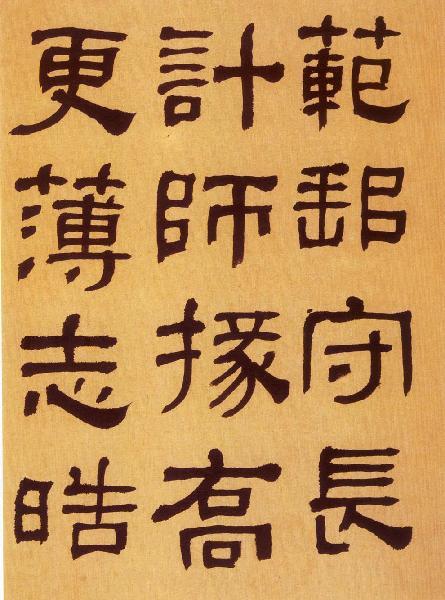 範邽守長
計師掾喬
更薄志晧